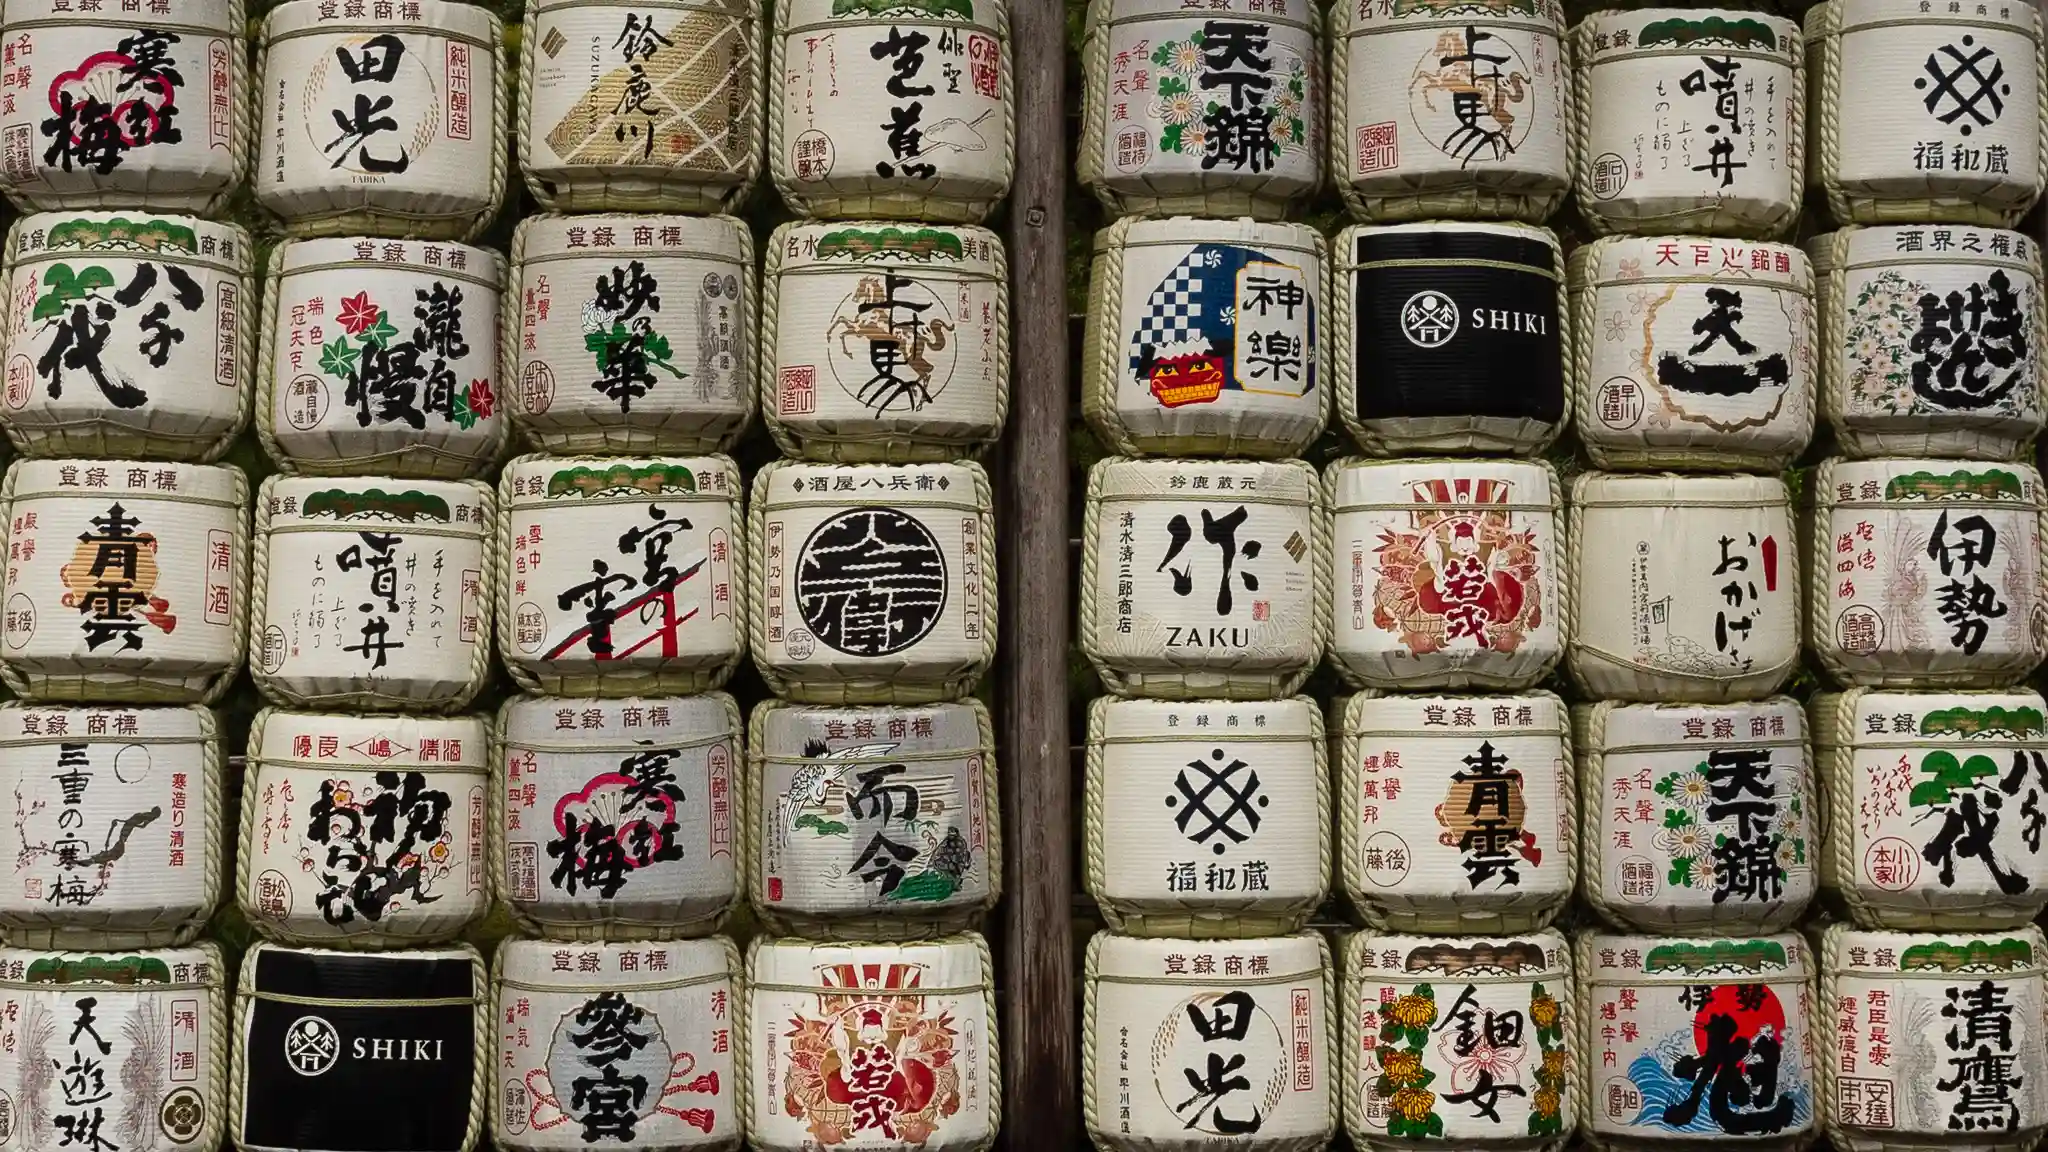 登録 商標
寒紅梅
名聲薫四海
芳醇無比
田光
純米醸造
合名会社 早川酒造
TABIKA
鈴鹿川
SUZUKAGAWA
俳聖
芭蕉
橋本謹醸
天下錦
名聲秀天涯
福持酒造
名水
上げ馬
純米酒
登録
噴井
手を入れて
井の噴き
上ぐる
ものに弱る
石川酒造
登録商標
福和蔵
登録 商標
八千代
高級清酒
小川本家
登録 商標
瀧自慢
瑞色冠天下
瀧自慢酒造
登録 商標
妖の華
名聲薫四海
名水 美酒
上げ馬
純米酒
神樂
SHIKI
天一
早川酒造
酒界之権威
登録 商標
青雲
嚴譽輝萬邦
清酒
後藤
登録 商標
噴井
手を入れて
井の噴き
上ぐる
ものに弱る
清酒
石川酒造
登録 商標
宮の雪
雪中瑞色鮮
清酒
宮崎本店謹醸
酒屋八兵衛
伊勢乃国醇酒
創業文化二年
鈴鹿蔵元
作
清水清三郎商店
ZAKU
若戎
おかげさま
登録
伊勢
高橋酒造
登録 商標
三重の寒梅
寒造り清酒
優良 嶋 清酒
初わらい
芳醇無比
登録 商標
寒紅梅
名聲薫四海
芳醇無比
登録 商標
而今
伊賀の地酒
登録商標
福和蔵
登録 商標
青雲
嚴譽輝萬邦
後藤
登録 商標
天下錦
名聲秀天涯
福持酒造
登録
八千代
小川本家
登録 商標
天遊琳
清酒
SHIKI
登録 商標
参宮
清酒
澤佐酒造
若戎
登録 商標
田光
純米醸造
合名会社 早川酒造
登録 商標
鈿女
登録 商標
伊勢
旭
聲譽輝宇内
旭酒造
登録 商標
清鷹
安達本家